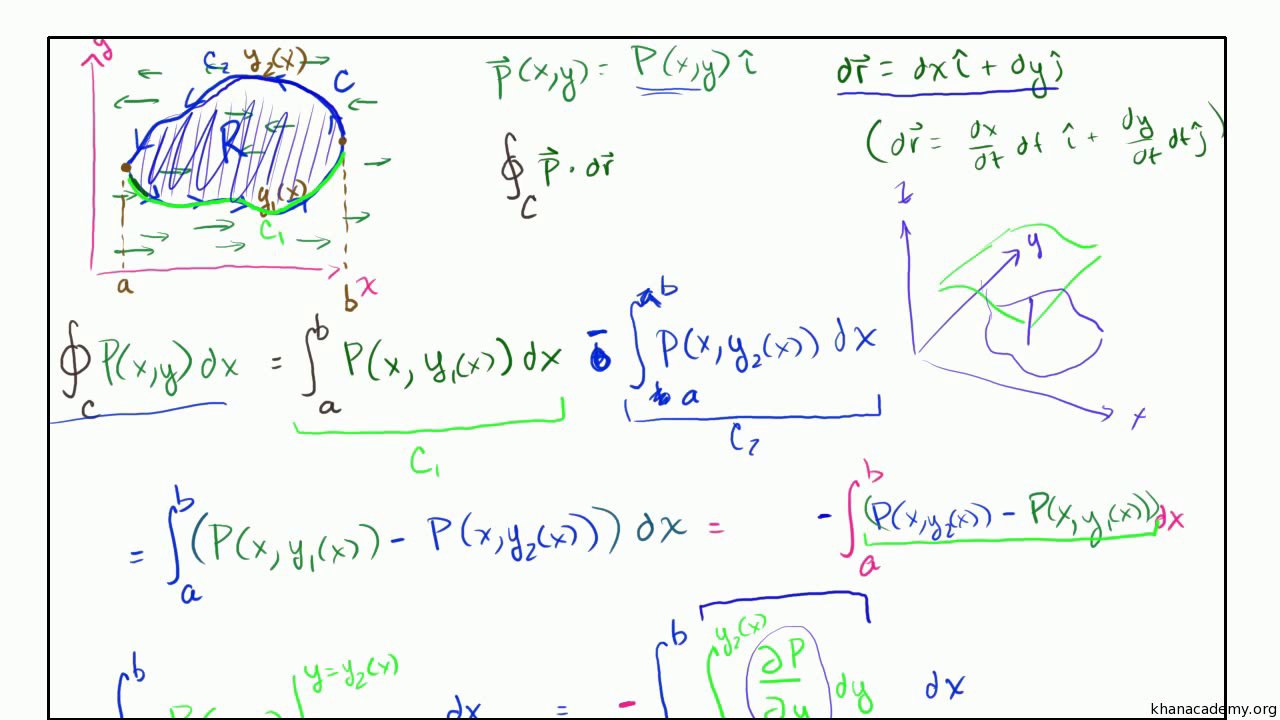 y
C₂ y₂(x)
C
R
y₁(x)
C₁
a
b x
P⃗(x,y) = P(x,y) î
dr⃗ = dx î + dy ĵ
(dr⃗ = dx/dt dt î + dy/dt dt ĵ)
∮_C P⃗ · dr⃗
z
y
x
∮_C P(x,y) dx = ∫_a^b P(x, y₁(x)) dx - ∫_a^b P(x, y₂(x)) dx
C₁
C₂
= ∫_a^b (P(x, y₁(x)) - P(x, y₂(x))) dx = - ∫_a^b (P(x, y₂(x)) - P(x, y₁(x))) dx
b y=y₂(x) dx = - ∫^b ∫^y₂(x) ∂P/∂y dy dx
khanacademy.org